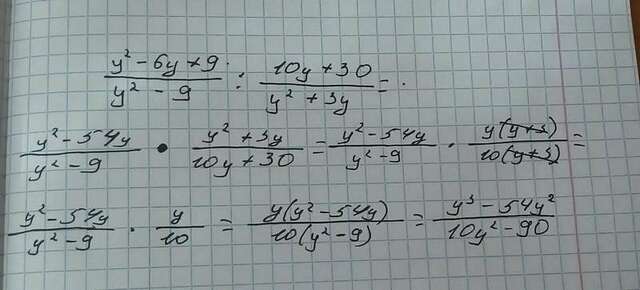 (y² - 6y + 9)/(y² - 9) : (10y + 30)/(y² + 3y) =
(y² - 54y)/(y² - 9) • (y² + 3y)/(10y + 30) = (y² - 54y)/(y² - 9) · y(y + 3)/10(y + 3) =
(y² - 54y)/(y² - 9) · y/10 = y(y² - 54y)/10(y² - 9) = (y³ - 54y²)/(10y² - 90)